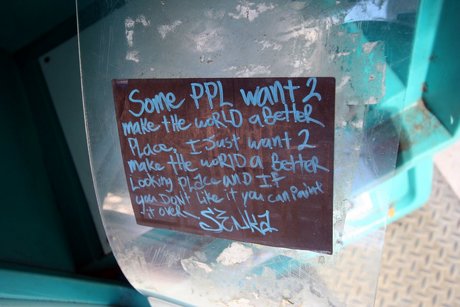 Some PPL want 2
make the world a Better
Place. I Just want 2
make the world a Better
Looking Place and If
you Don't Like it you can Paint
it over
SENKZ